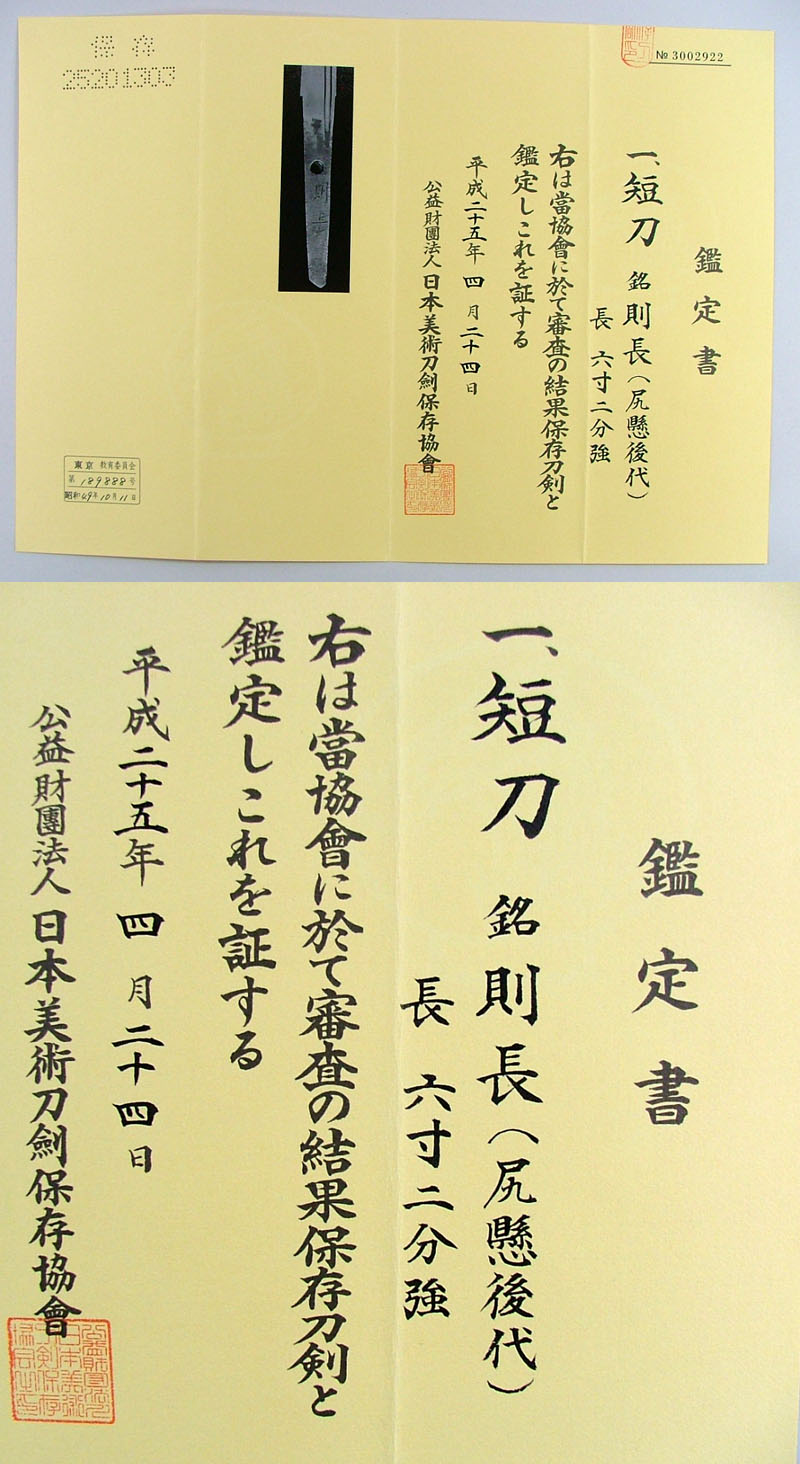 № 3002922
鑑定書
一、短刀 銘 則長（尻懸後代）
長 六寸二分強
右は當協會に於て審査の結果保存刀剣と
鑑定しこれを証する
平成二十五年 四 月 二十四日
公益財團法人 日本美術刀劍保存協會
則長
保存
25201303
東京 教育委員会
第 189888 号
昭和49年10月11日
鑑定書
一、短刀 銘 則長（尻懸後代）
長 六寸二分強
右は當協會に於て審査の結果保存刀剣と
鑑定しこれを証する
平成二十五年 四 月 二十四日
公益財團法人 日本美術刀劍保存協會